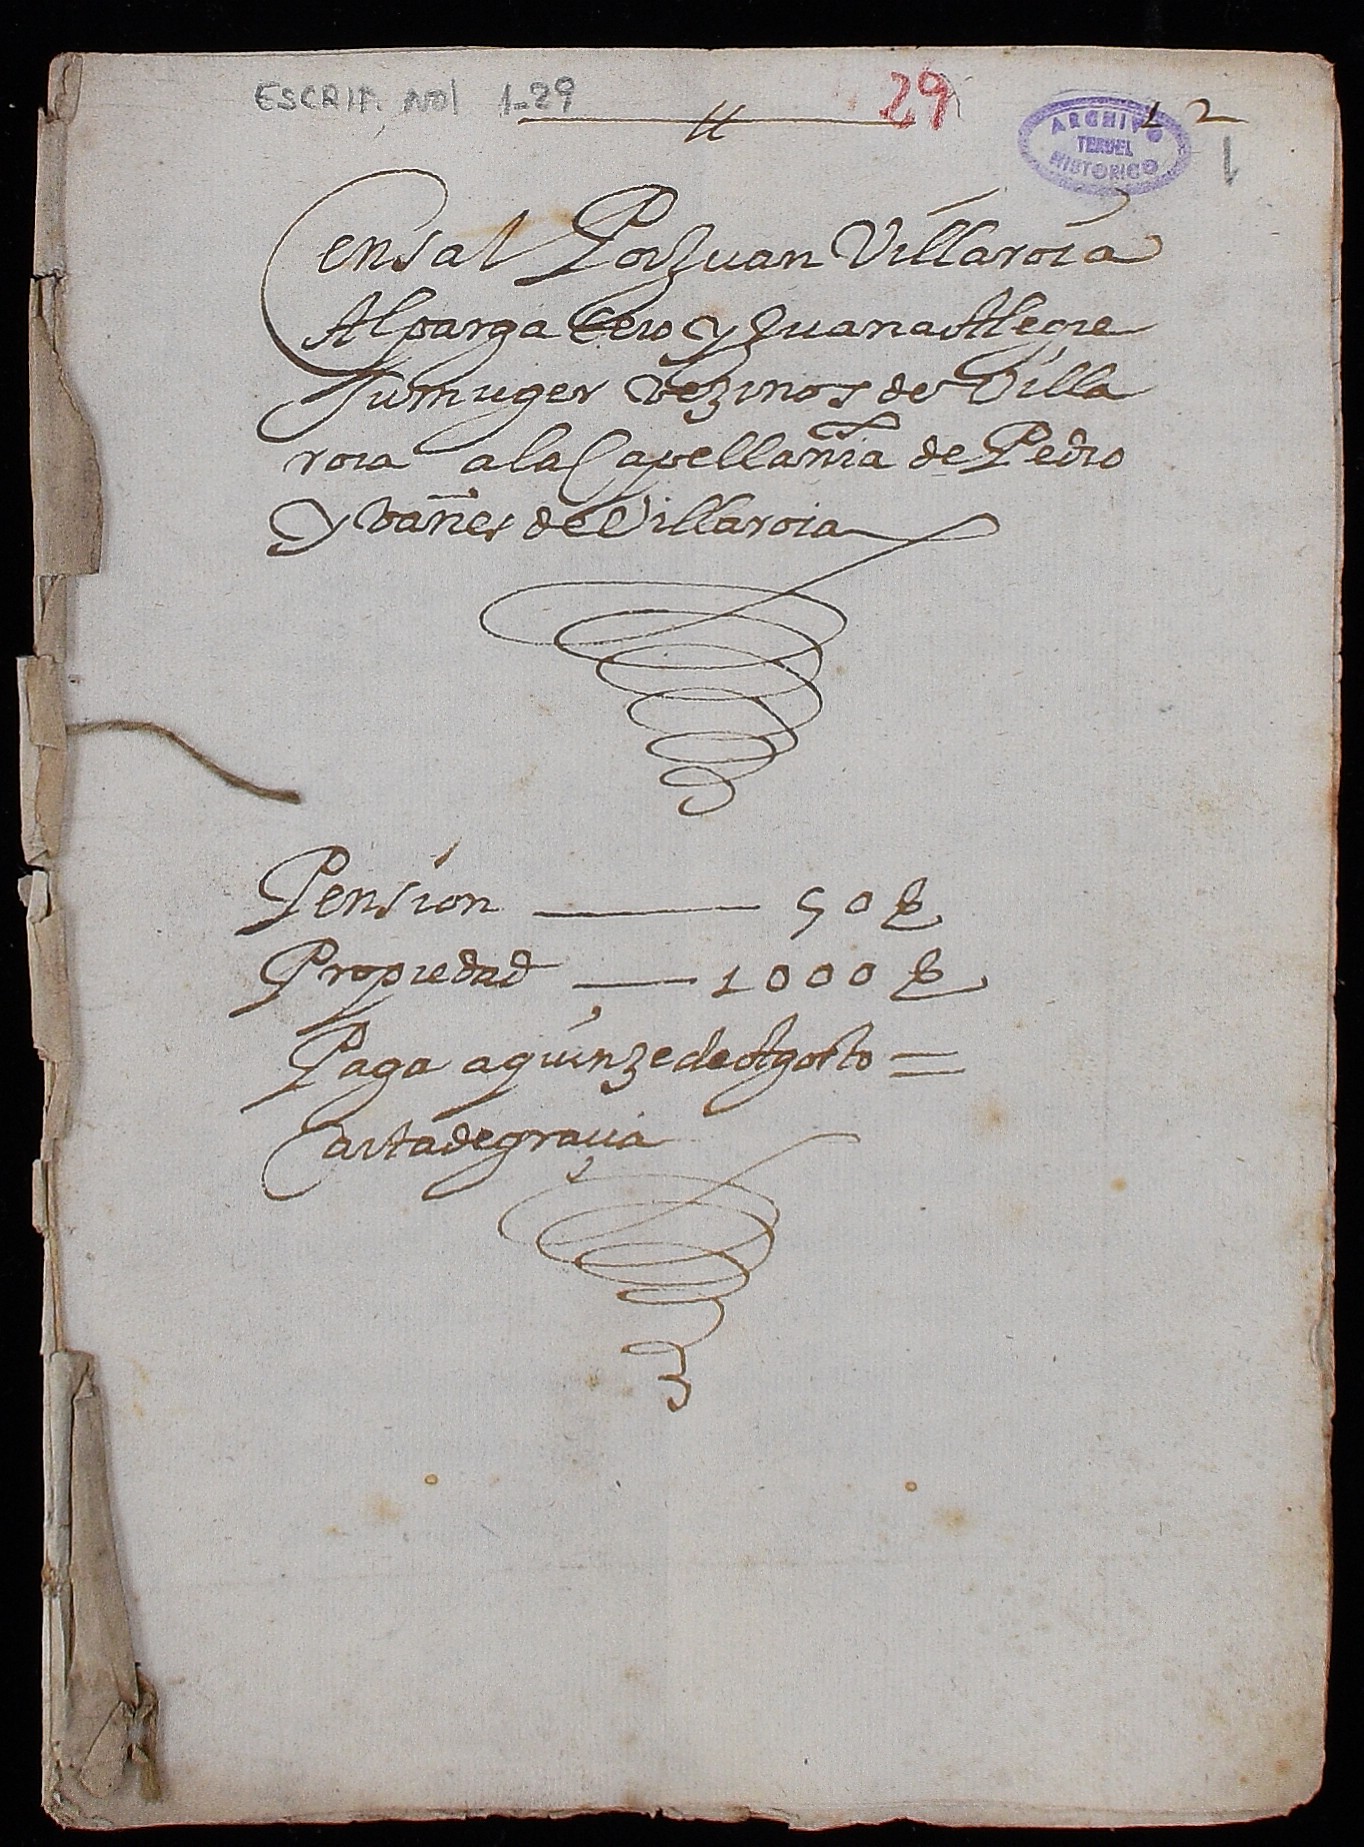 ESCRIT. NOT 1-29
29
L 2
ARCHIVO
TERUEL
HISTORICO
1
Censal Por Juan Villaroia
Alpargatero y Juana Alegre
su muger vezinos de Villa
roia a la Capellañia de Pedro
Ybañes de Villaroia
Pension 50 ß
Propiedad 1000 ß
Paga a quinze de Agosto =
Carta de gracia